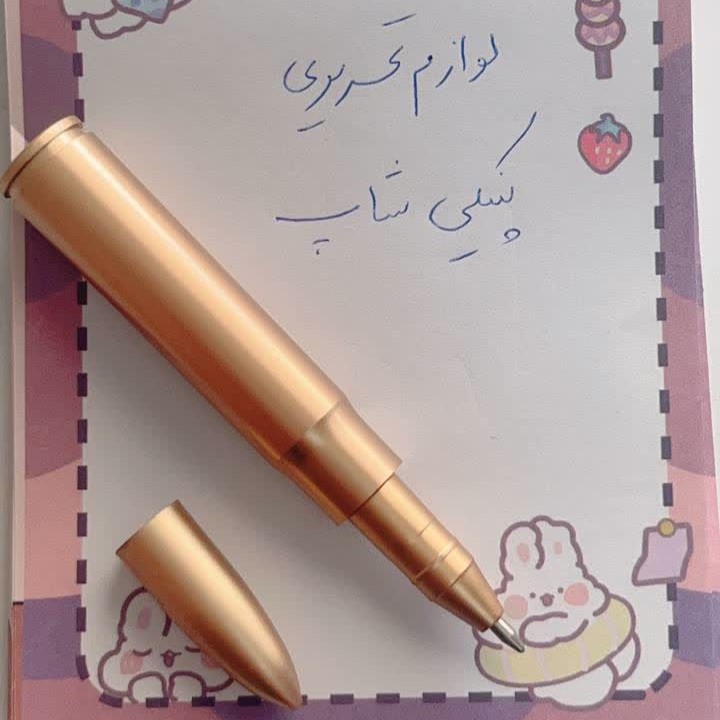 لوازم تحریری
پنکی شاپ